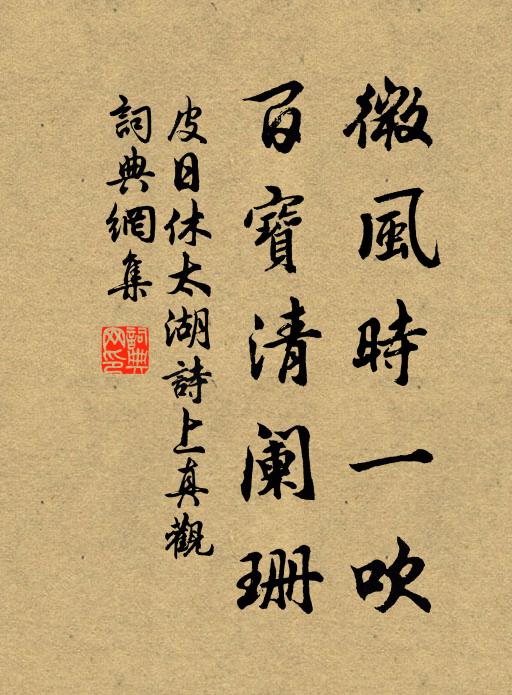 微風時一吹
百寶清阑珊
皮日休太湖詩上真觀
詞典網集
詞典网印